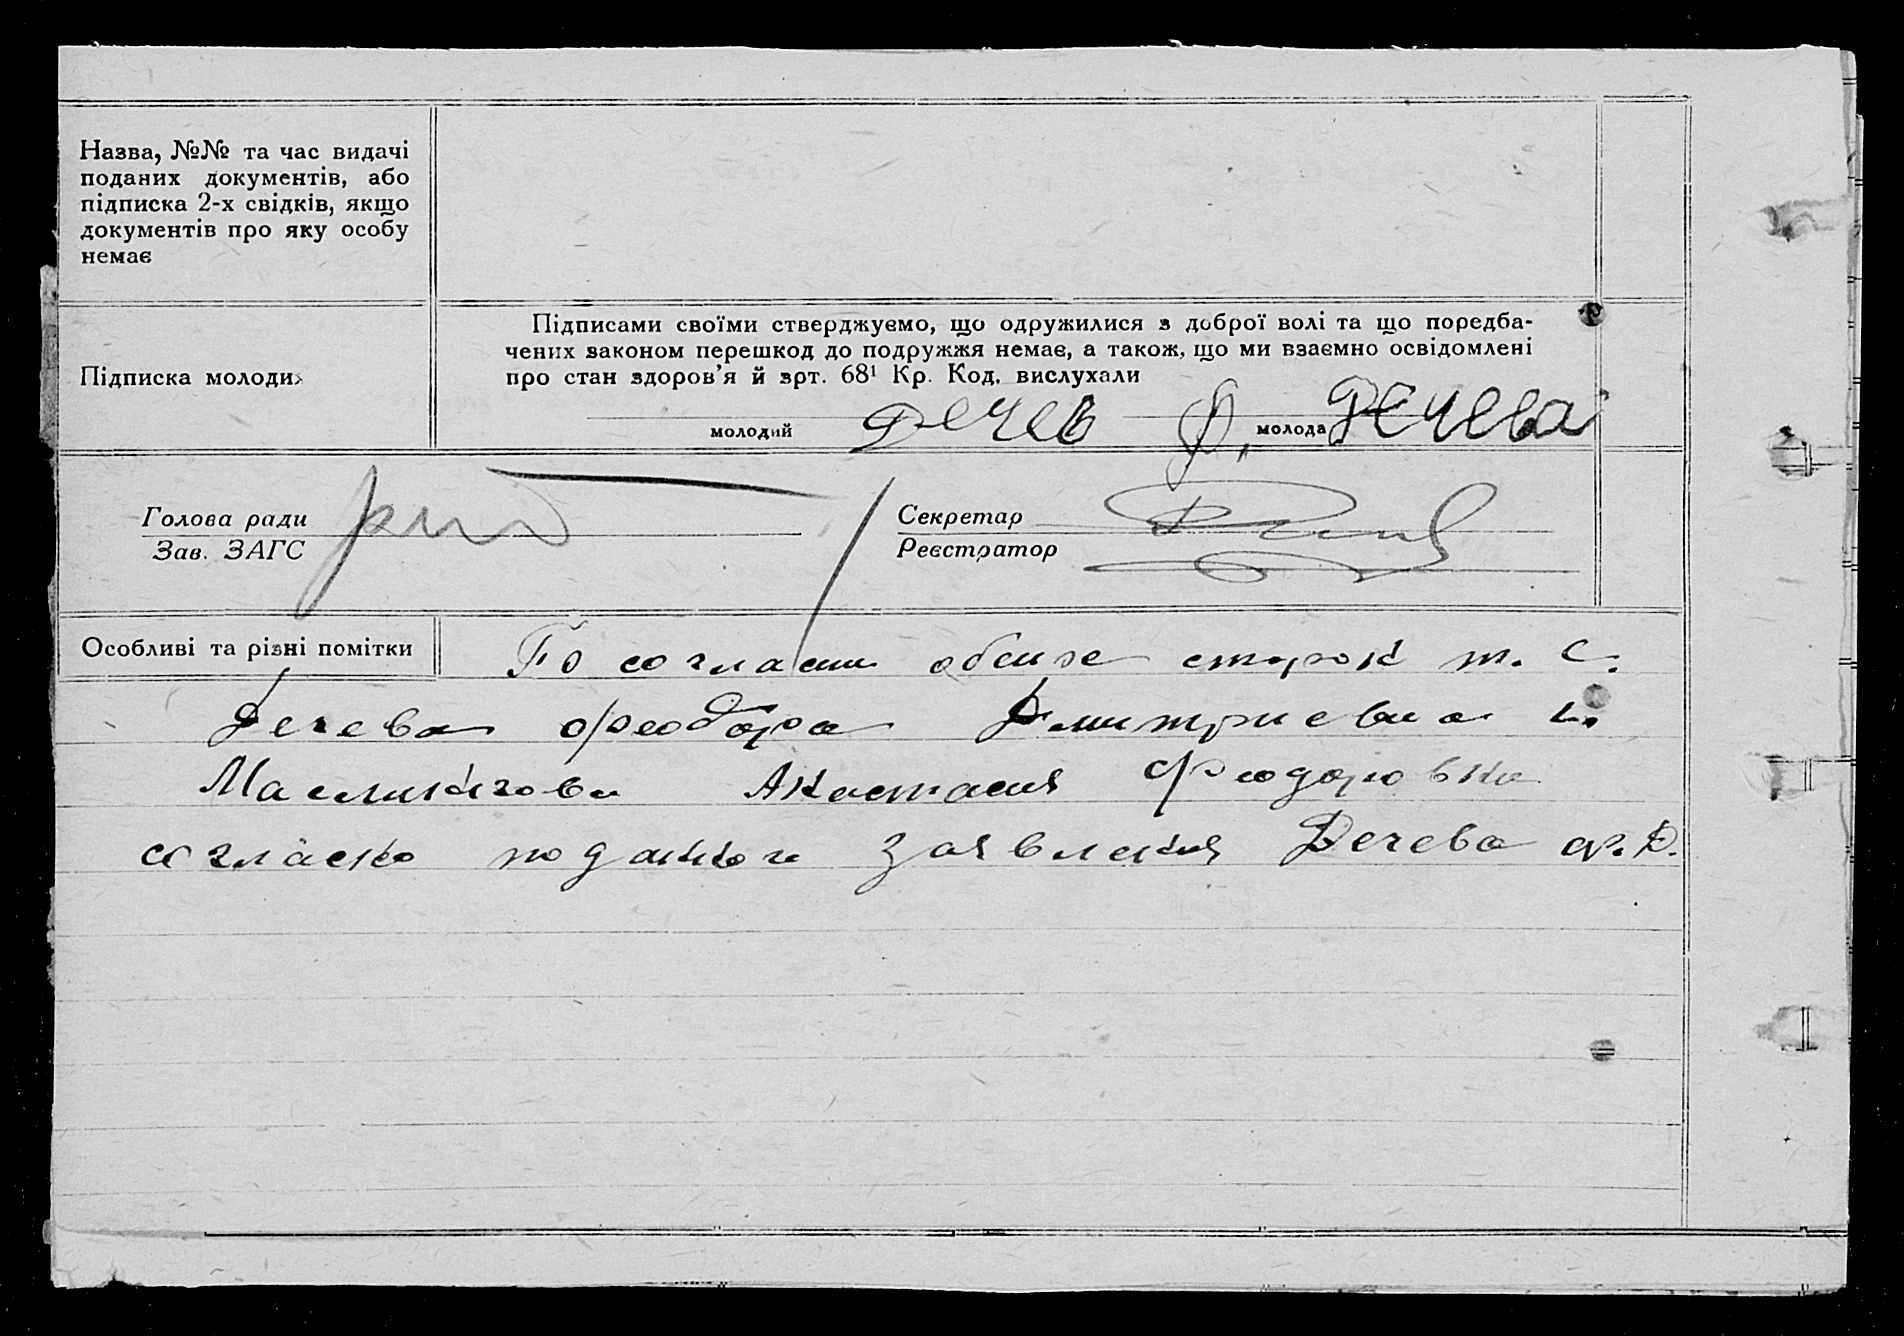 Назва, №№ та час видачі
поданих документів, або
підписка 2-х свідків, якщо
документів про яку особу
немає
Підписка молодих
Підписами своїми стверджуємо, що одружилися з доброї волі та що поредба-
чених законом перешкод до подружжя немає, а також, що ми взаємно освідомлені
про стан здоров'я й зрт. 68¹ Кр. Код. вислухали
молодий Дечев Ф. молода Дечева
Голова ради
Зав. ЗАГС
Секретар
Реєстратор
Особливі та різні помітки
По согласии обеих сторон т. с.
Дечева Феодора Дмитриевича и
Анастасия Феодоровна
согласно поданого заявления Дечева Ф. Д.